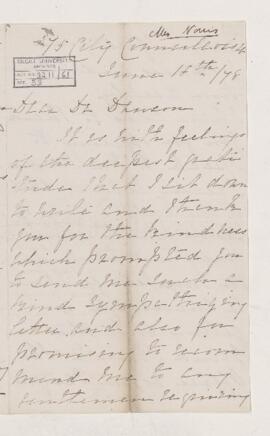 Mrs Norris
75 City Councillors St
June 18th/78
McGILL UNIVERSITY
ARCHIVES
ACC. NO. 2211/61
REF. 53
Dear Dr Dawson
It is with feelings
of the deepest grati
tude that I sit down
to write and thank
you for the kindness
which prompted you
to send me such a
kind sympathizing
letter and also for
promising to recom
mend me to any
gentlemen requiring